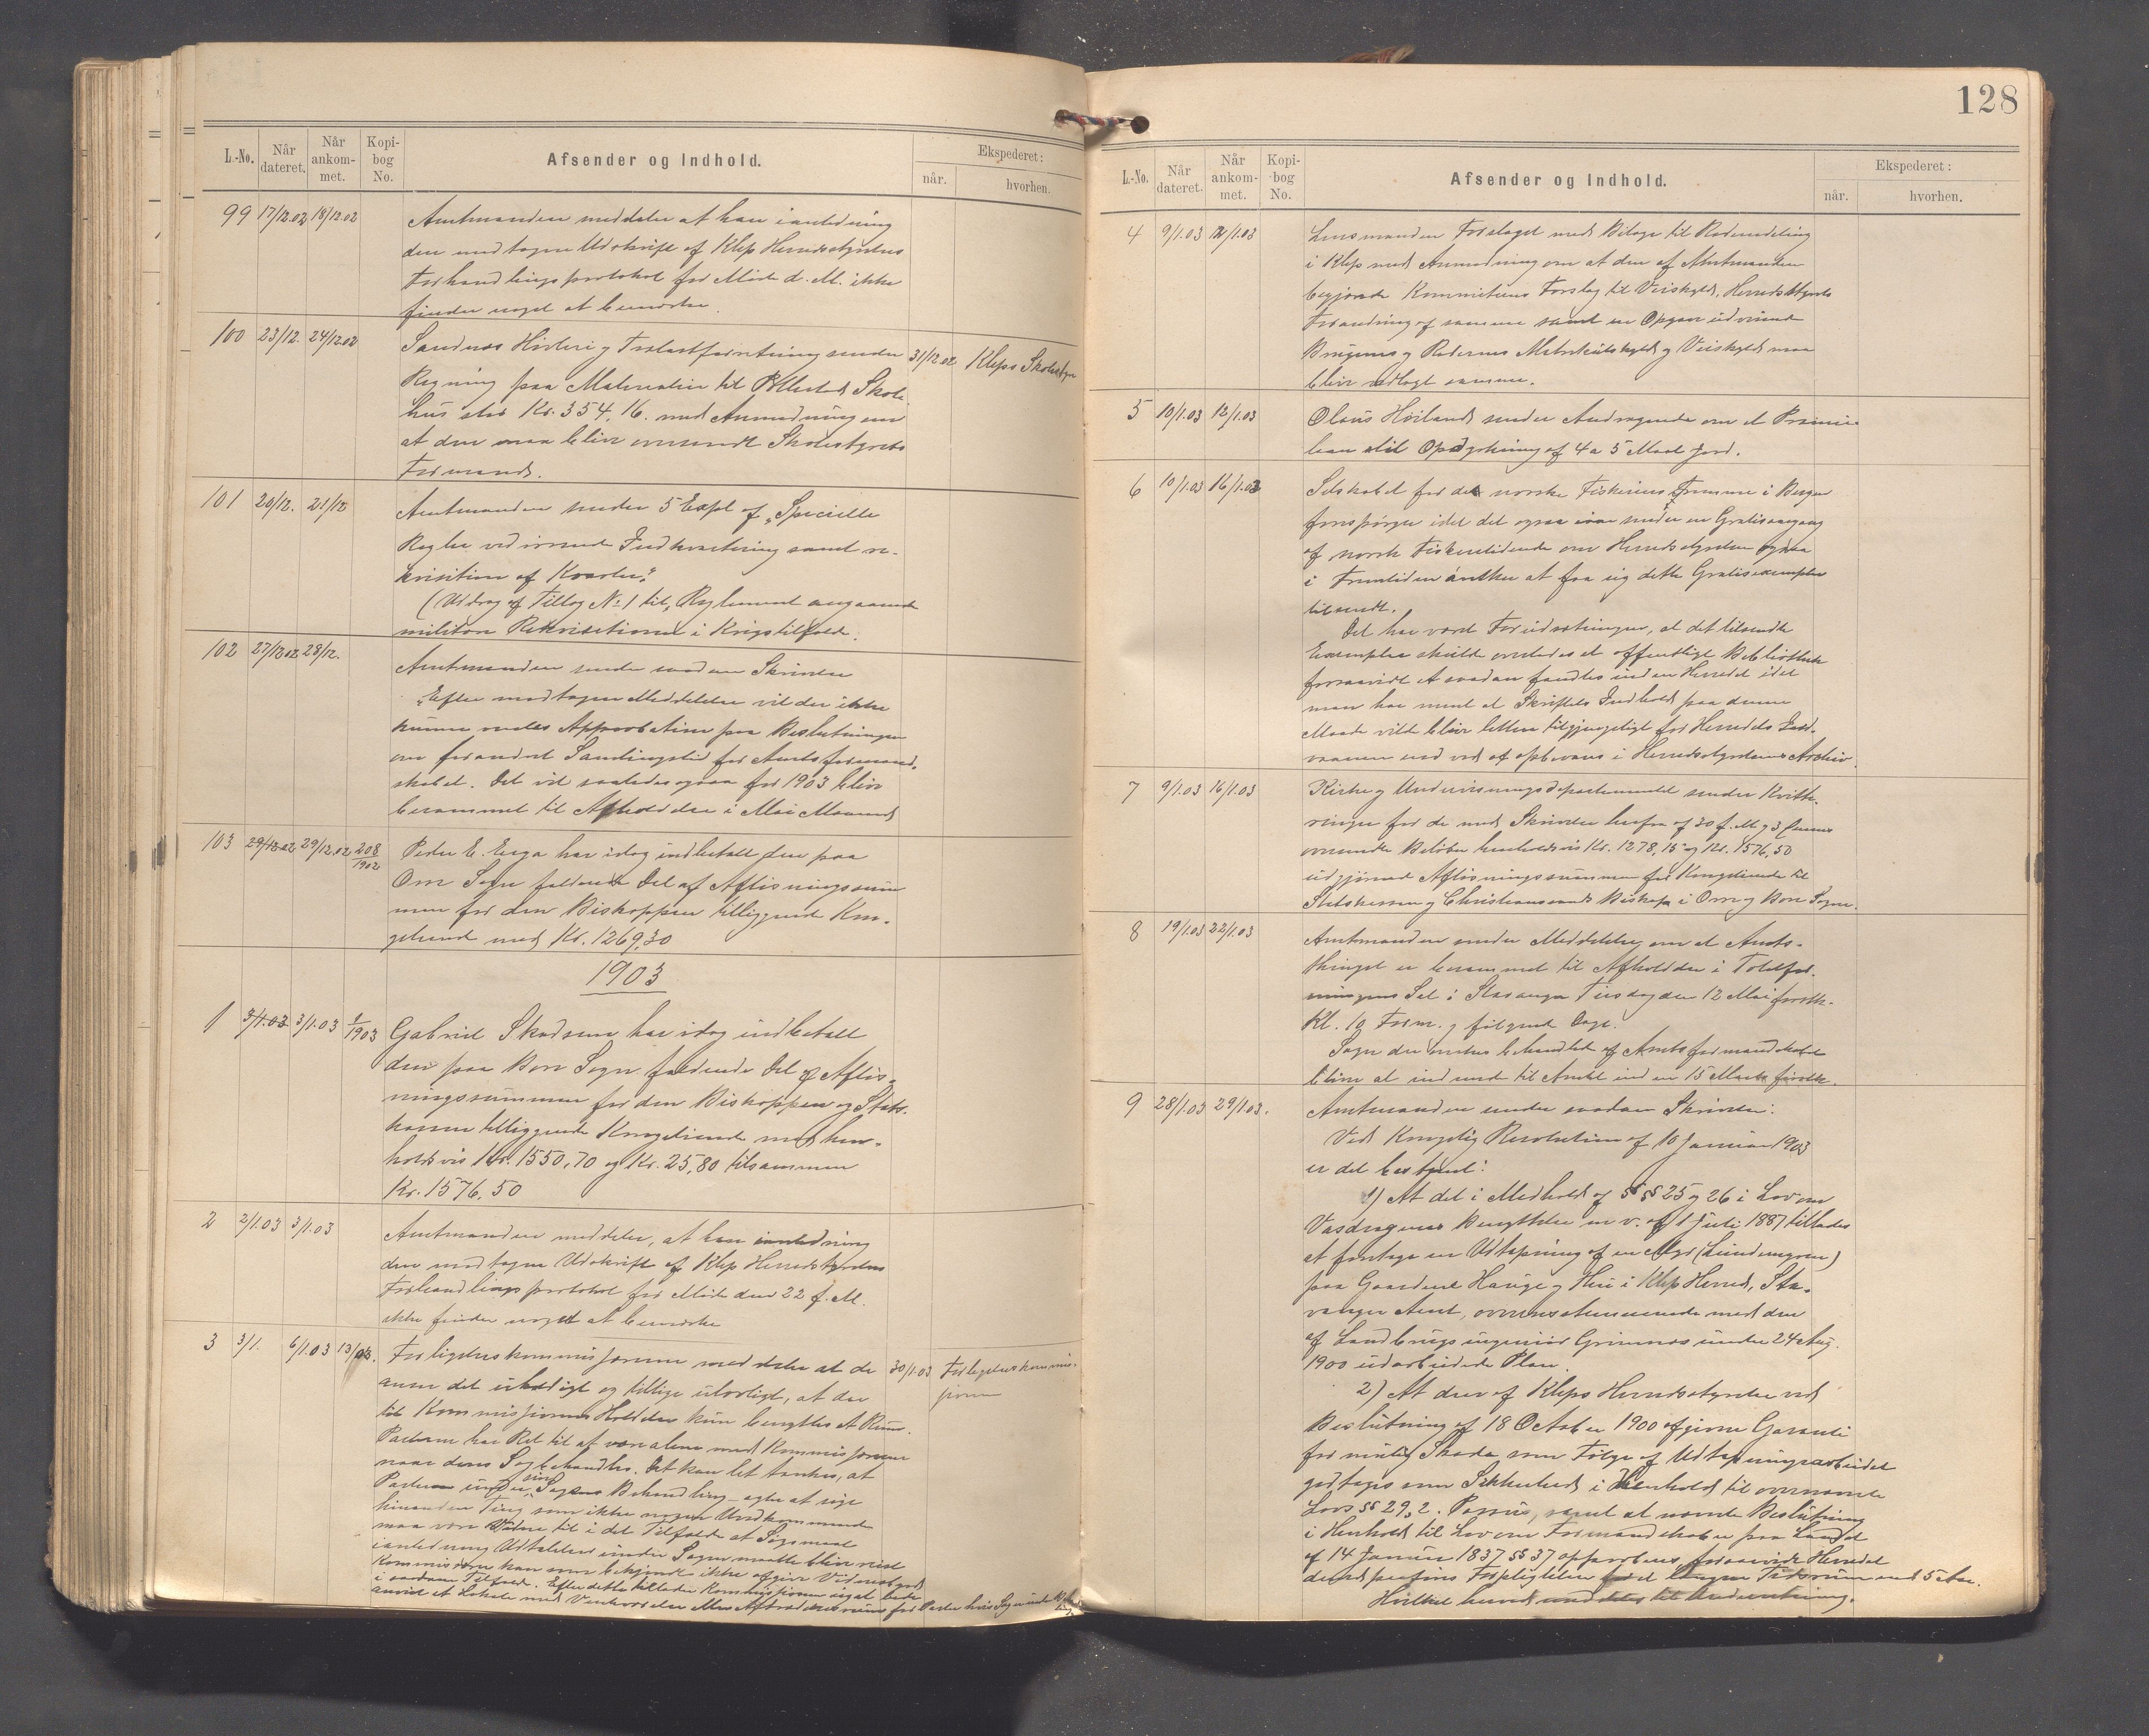 128
L.-No. Når dateret. Når ankommet. Kopibog No. Afsender og Indhold. Ekspederet: når. hvorhen.
99 17/12.02 18/12.02 Amtmanden meddeler at han i anledning
den modtagne Udskrift af Klep Herredsstyrelses
Forhandlingsprotokol for Møde d. M. ikke
finder noget at bemærke.
100 23/12. 24/12.02 Sandnes Høvleri og Trælastforretning sender 31/12.02 Kleps Skolestyre
Regning paa Materialier til Skole
hus stor Kr. 354,16. med Anmodning om
at den maa blive oversendt Skolestyrets
Formand.
101 20/12. 21/12 Amtmanden sender 5 Expl af „Specielle
Regler vedrørende Indkvartering samt re-
kvisition af Kvarter“
(Udrag af Tillæg No 1 til „Reglement angaaende
militære Rekvisitioner i Krigstilfælde.
102 27/12.02 28/12. Amtmanden sender saadan Skrivelse
„Efter modtagen Meddelelse vil der ikke
kunne ventes Approbation paa Beslutningen
om forandret Samlingstid for Amtsformand-
skabet. Det vil saaledes ogsaa for 1903 blive
berammet til Afholdelse i Mai Maaned
103 29/12.02 29/12.02 208/1902 Peder E. Erga har idag indbetalt den paa
Orre Sogn faldende Del af Afløsningssum
men for den Biskoppen tilliggende Kon-
getiende med Kr. 1269,30
1903
1 3/1.03 3/1.03 1/1903 Gabriel Skadsem har idag indbetalt
den paa Bore Sogn faldende Del af Afløs-
ningssummen for den Biskoppen og Stats-
kassen tilliggende Kongetiende med hen-
holdsvis Kr. 1550,70 og Kr. 25,80 tilsammen
Kr. 1576,50
2 2/1.03 3/1.03 Amtmanden meddeler, at han i anledning
den modtagne Udskrift af Klep Herredsstyrelses
Forhandlingsprotokol for Møde den 22 f. M.
ikke finder noget at bemærke
3 3/1. 6/1.03 13/03. Forligelseskommisjonen meddeler at de 30/1.03 Forligelseskommis-
anser det uheldigt og tillige ulovligt, at der sjonen
til Kommissjonens Holdelse kun benyttes et Rum.
Parterne har Ret til at være alene med Kommisjonen
naar deres Sag behandles. Det kan let tænkes, at
Parterne under sin Sagens Behandling agter at sige
hinanden Ting som ikke nogen Uvedkommende
maa være Vidne til i det Tilfælde at Søgsmaal
i anledning Udtalelser under Sagen maatte blive reist
Kommisjonen kan som bekjendt ikke afgive Vidnesbyrd
i saadant Tilfælde. Efter dette tillader Kommissjonen sig at bede
anvist et Lokale med Venteværelse eller Aftrædelsesrum for Parter hvis Sag
L.-No. Når dateret. Når ankommet. Kopibog No. Afsender og Indhold. Ekspederet: når. hvorhen.
4 9/1.03 12/1.03 Lensmanden Forslaget med Bilage til Rodeinddeling
i Klep med Anmodning om at den af Amtmanden
begjærede Kommiteens Forslag til Veiskyld, Herredsstyrets
Forandring af samme samt en Opgave udvisende
Brugenes og Rodernes Matrikulskyld og Veiskyld maa
blive vedlagt samme.
5 10/1.03 12/1.03 Olaus Høiland sender Andragende om et Præmie-
laan til Opdyrkning af 4 a 5 Maal Jord.
6 10/1.03 16/1.03 Selskabet for de norske Fiskeriers Fremme i Bergen
forespørger idet det ogsaa iaar sender en Gratisaargang
af norsk Fiskeritidende om Herredsstyrelsen ogsaa
i Fremtiden ønsker at faa sig dette Gratisexemplar
tilsendt.
Det har været Forudsætningen, at det tilsendte
Exemplar skulde overlades et offentligt Bibliothek
forsaavidt et saadan fandtes inden Herredet idet
man har ment at Skriftets Indhold paa denne
Maade vilde blive lettere tilgjængeligt for Herredets Ind-
vaanere end ved at opbevares i Herredsstyrelsens Archiv.
7 9/1.03 16/1.03 Kirke og Undervisningsdepartementet sender Kvitte-
ringer for de med Skrivelse herfra af 30 f. M. og 3 dennes
oversendte Beløber henholdsvis Kr. 1278,15 og Kr. 1576,50
udgjørende Afløsningssummen for Kongetiende til
Statskassen og Christianssands Biskop i Orre og Bore Sogne.
8 19/1.03 22/1.03 Amtmanden sender Meddelelse om at Amts-
thinget er berammet til Afholdelse i Toldfor-
eningens Sal i Stavanger Tirsdag den 12 Mai førstk.
Kl. 10 Form. og følgende Dage.
Sager der ønskes behandlet af Amtsformandskabet
blive at indsende til Amtet inden 15 Marts førstk.
9 28/1.03 29/1.03. Amtmanden sender saadan Skrivelse:
Ved Kongelig Resolution af 10 Januar 1903
er det bestemt:
1) At det i Medhold af §§ 25 og 26 i Lov om
Vasdragenes Benyttelse m. v. af 1 Juli 1887 tillades
at foretage en Udtapning af en Myr (Lindemyren)
paa Gaardene Hauge og Hui i Klep Herred, Sta-
vanger Amt, overensstemmende med den
af Landbrugsingeniør Grimnes under 24 Aug.
1900 udarbeidede Plan.
2) At den af Kleps Herredsstyrelse ved
Beslutning af 18 October 1900 afgivne Garanti
for mulig Skade som Følge af Udtapningsarbeidet
godtages som Sikkerhed i Henhold til ovennævnte
Lovs §§ 29, 2. Passus, samt at nævnte Beslutning
i Henhold til Lov om Formandskaber paa Landet
af 14 Januar 1837 §§ 37 approberes, forsaavidt Herredet
derved paaføres Forpligtelser for et længere Tidsrum end 5 Aar.
Hvilket herved meddeles til Underretning.